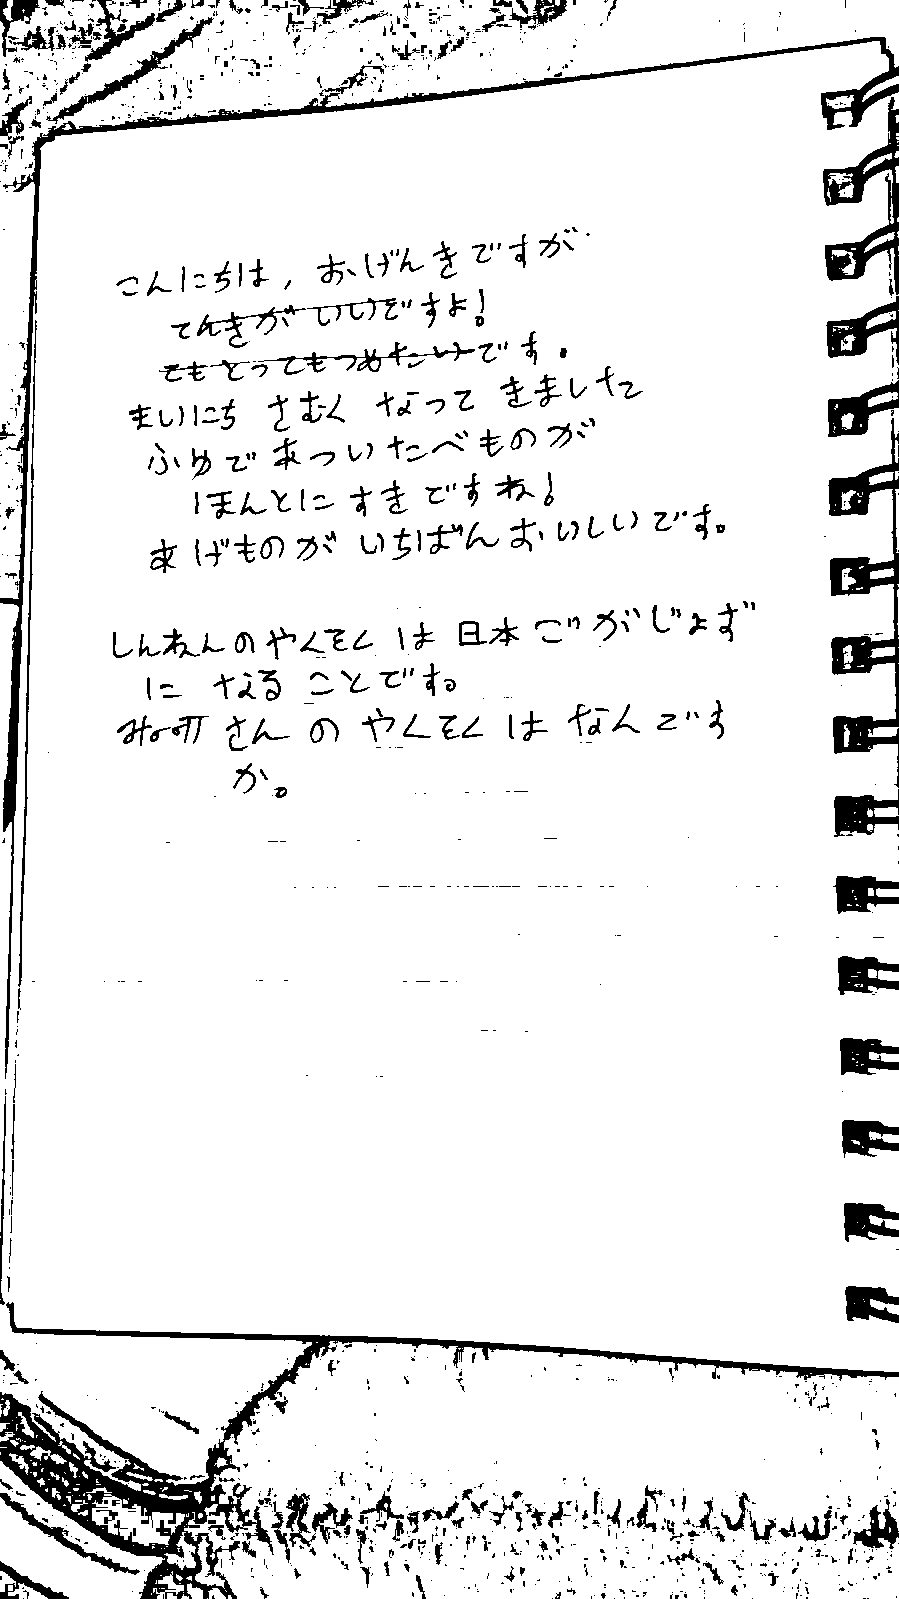 こんにちは, おげんきですが
てんきがいいですよ!
てもとってもつめたいです.
まいにち さむく なって きました
ふゆで あつい たべものが
ほんとに すき ですね!
あげものが いちばん おいしいです。
しんねんのやくそく は 日本ごがじょず
に なる ことです。
さん の やくそく は なんです
か。